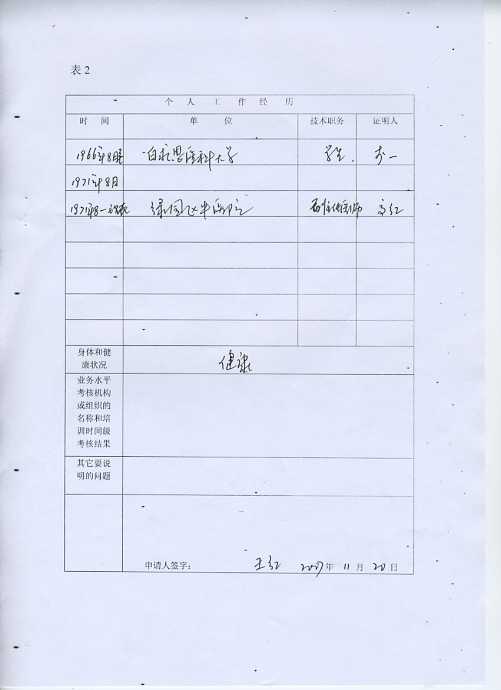 表2
个 人 工 作 经 历
时 间 单 位 技术职务 证明人
1966年8月至 白求恩医科大学 学生
1971年8月
1971年8一 绿园区 医院 高红
身体和健
康状况 健康
业务水平
考核机构
或组织的
名称和培
训时间级
考核结果
其它要说
明的问题
申请人签字: 王红 2007年11月20日